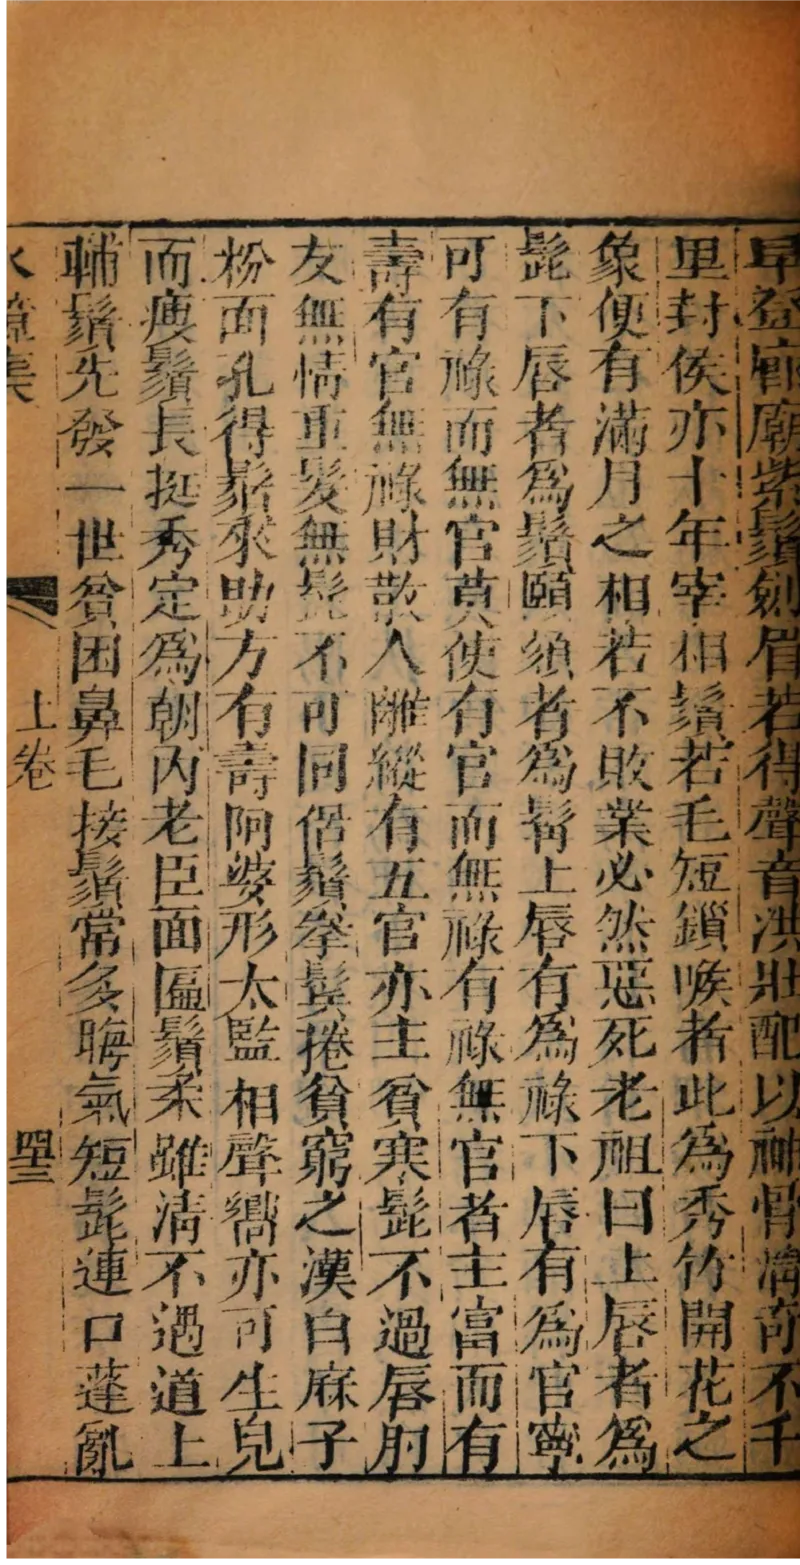 早登廊廟紫鬚劍眉若得聲音洪壯配以神骨清奇不千
里封侯亦十年宰相鬚若毛短鎖喉者此為秀竹開花之
象便有滿月之相若不敗業必然惡死老祖曰上唇者為
髭下唇者為鬚頤須者為髯上唇有為祿下唇有為官寧
可有祿而無官莫使有官而無祿有祿無官者主富而有
壽有官無祿財散人離縱有五官亦主貧寒髭不過唇肘
友無情重髮無髭不可同侶鬚拳鬢捲貧窮之漢白麻子
粉面孔得鬍來助方有壽阿婆形太監相聲嚮亦可生兒
而瘦鬚長挺秀定為朝內老臣面匾鬚柔雖清不過道上
輔鬚先發一世貧困鼻毛接鬚常多晦氣短髭連口蓬亂
上卷